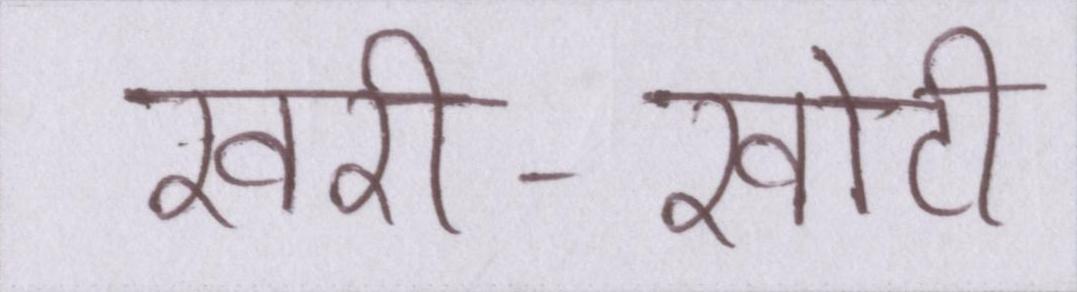 खरी - खोटी